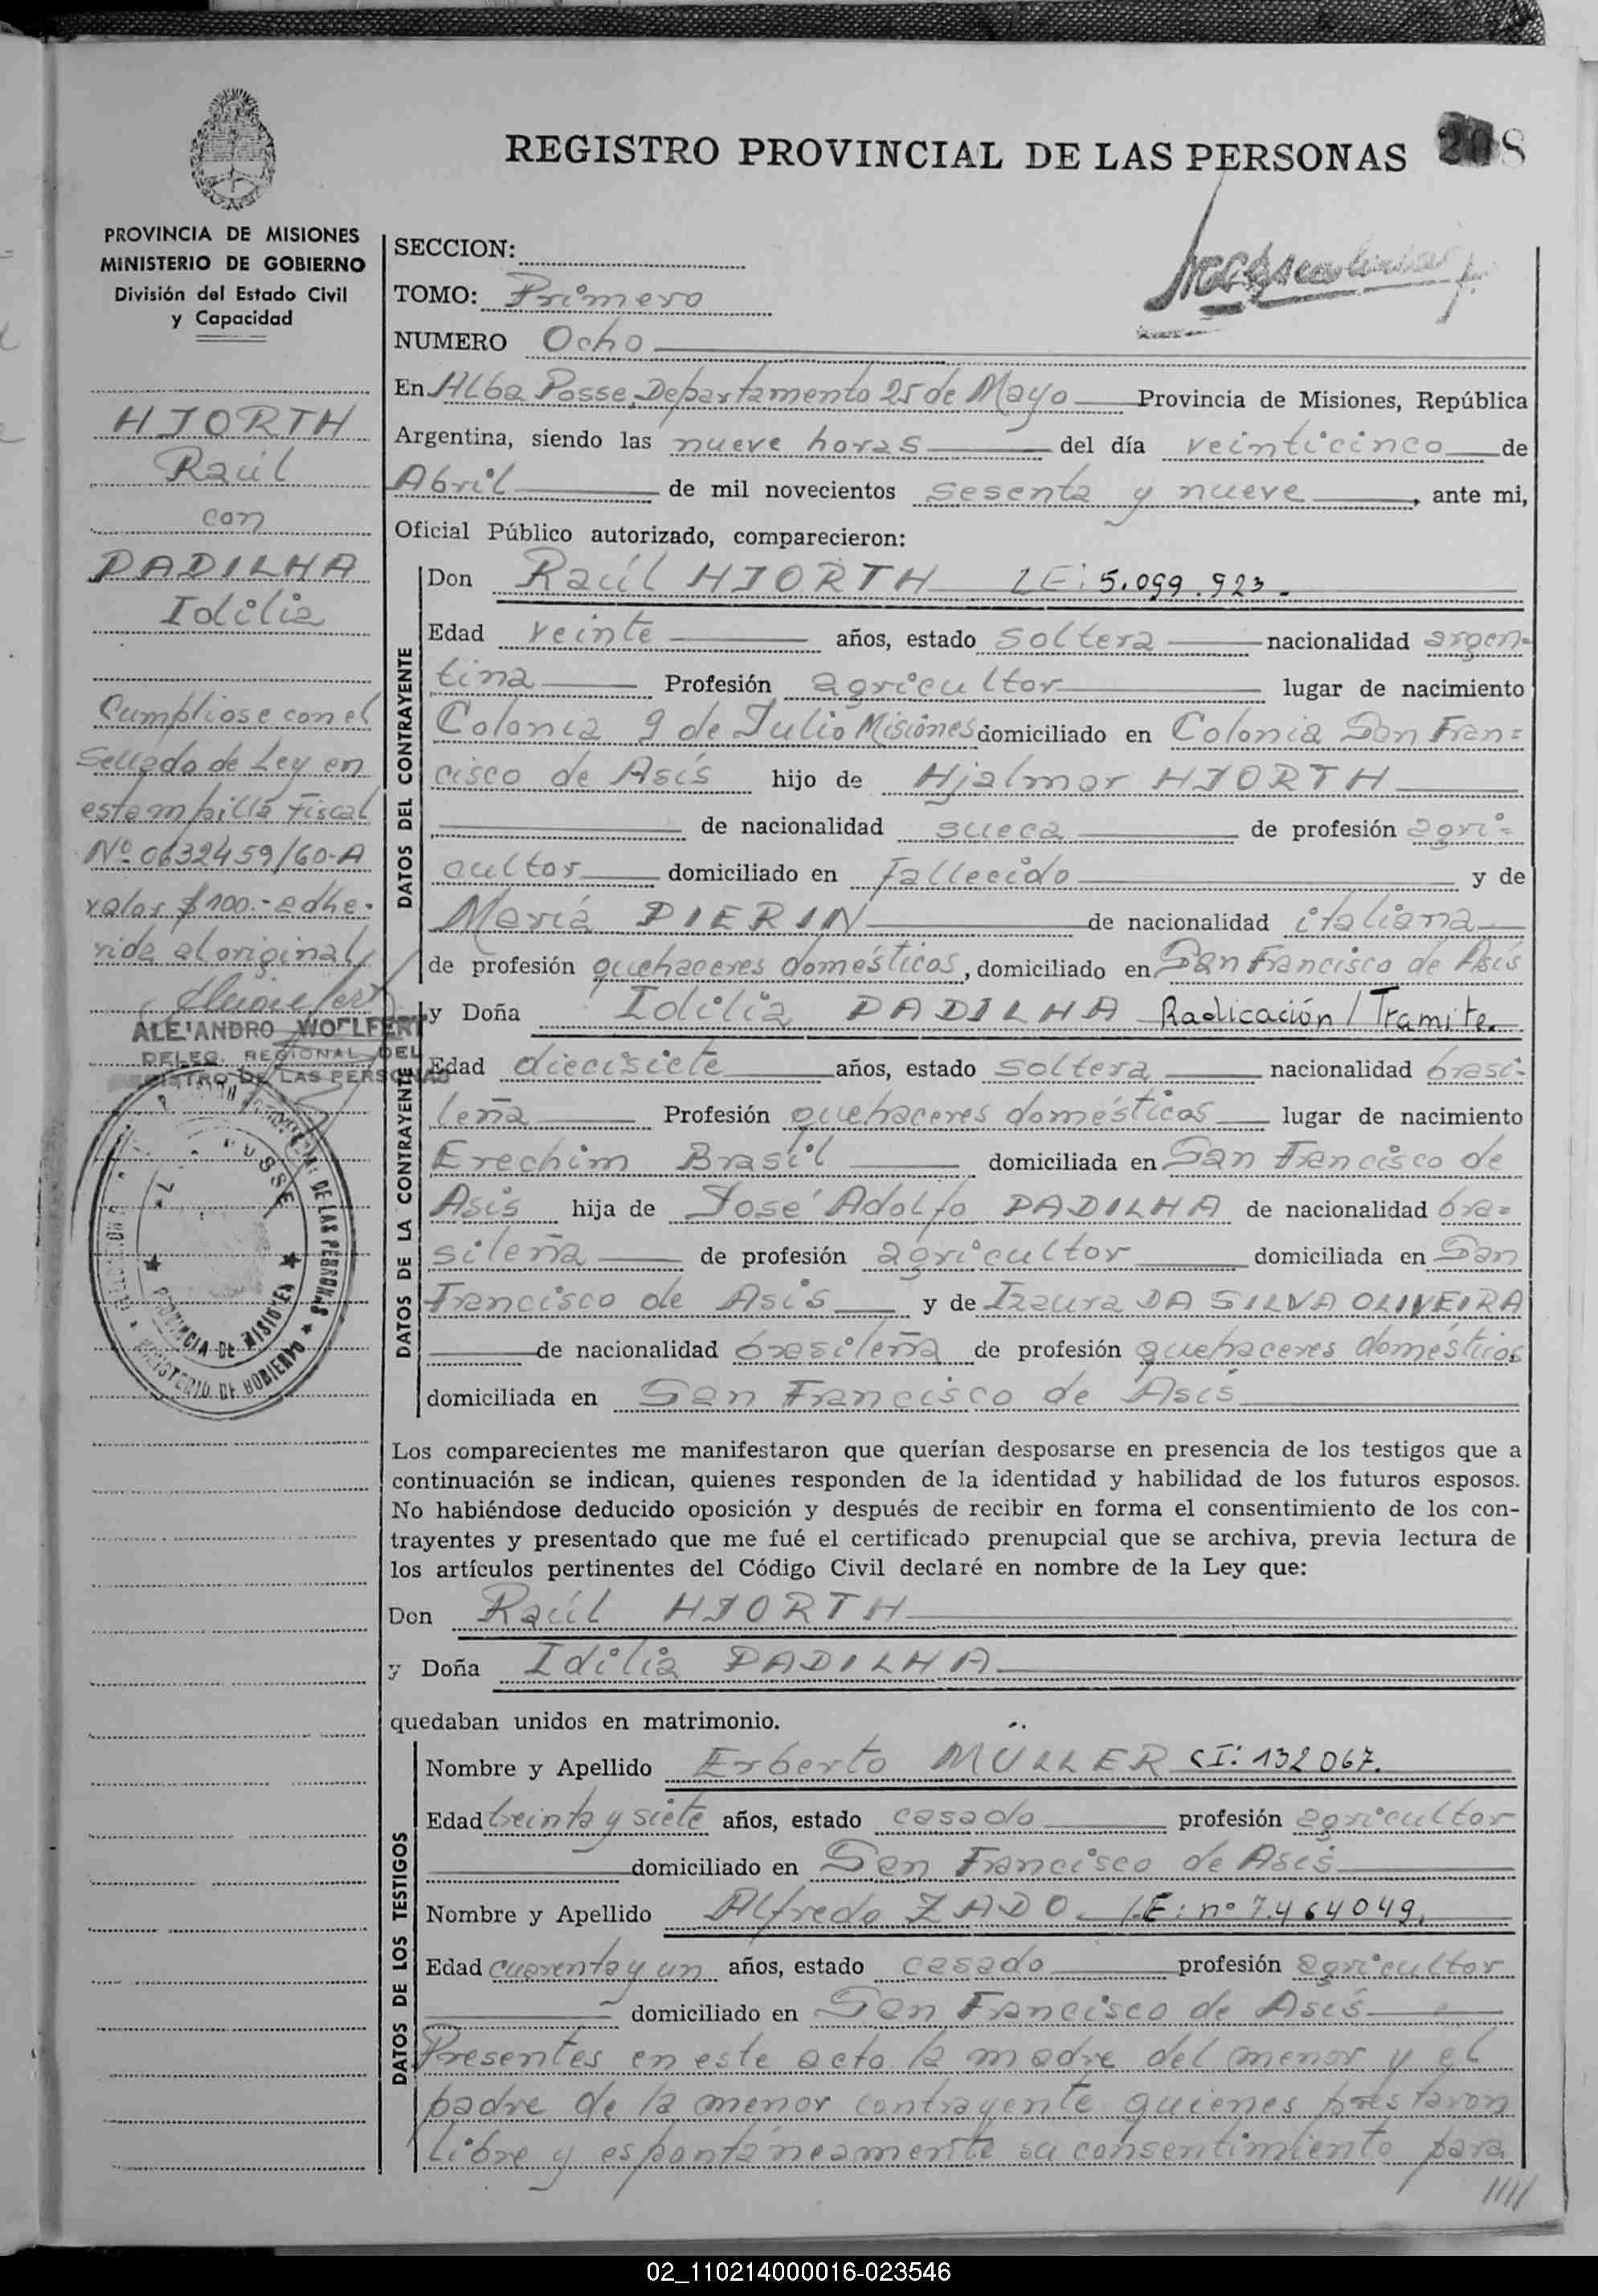 REGISTRO PROVINCIAL DE LAS PERSONAS 208
PROVINCIA DE MISIONES
MINISTERIO DE GOBIERNO
División del Estado Civil
y Capacidad
HJORTH
Raúl
con
PADILHA
Idilia
Cumpliose con el
Sellado de Ley en
estampilla Fiscal
Nº 0632459/60-A
valor $ 100.- adhe-
rida al original
ALEJANDRO WOLFERT
DELEG. REGIONAL DEL
REGISTRO DE LAS PERSONAS
PROVINCIA DE MISIONES
MINISTERIO DE GOBIERNO
SECCION:
TOMO: Primero
NUMERO Ocho
En Alba Posse, Departamento 25 de Mayo Provincia de Misiones, República
Argentina, siendo las nueve horas del día veinticinco de
Abril de mil novecientos sesenta y nueve, ante mi,
Oficial Público autorizado, comparecieron:
DATOS DEL CONTRAYENTE
Don Raúl HJORTH LE: 5.099.923.
Edad veinte años, estado soltera nacionalidad argen-
tina Profesión agricultor lugar de nacimiento
Colonia 9 de Julio Misiones domiciliado en Colonia San Fran=
cisco de Asís hijo de Hjalmar HJORTH
de nacionalidad sueca de profesión agri=
cultor domiciliado en Fallecido y de
María PIERIN de nacionalidad italiana
de profesión quehaceres domésticos, domiciliado en San Francisco de Asís
DATOS DE LA CONTRAYENTE
y Doña Idilia PADILHA Radicación / Tramite.
Edad diecisiete años, estado soltera nacionalidad brasi-
leña Profesión quehaceres domésticos lugar de nacimiento
Erechim Brasil domiciliada en San Francisco de
Asis hija de José Adolfo PADILHA de nacionalidad bra=
sileña de profesión agricultor domiciliada en San
Francisco de Asis y de Izaura DA SILVA OLIVEIRA
de nacionalidad brasileña de profesión quehaceres domésticos,
domiciliada en San Francisco de Asís
Los comparecientes me manifestaron que querían desposarse en presencia de los testigos que a
continuación se indican, quienes responden de la identidad y habilidad de los futuros esposos.
No habiéndose deducido oposición y después de recibir en forma el consentimiento de los con-
trayentes y presentado que me fué el certificado prenupcial que se archiva, previa lectura de
los artículos pertinentes del Código Civil declaré en nombre de la Ley que:
Don Raúl HJORTH
y Doña Idilia PADILHA
quedaban unidos en matrimonio.
DATOS DE LOS TESTIGOS
Nombre y Apellido Erberto MÜLLER CI: 132067.
Edad treinta y siete años, estado casado profesión agricultor
domiciliado en San Francisco de Asis
Nombre y Apellido Alfredo ZADO. LE: nº 7.464049.
Edad cuarenta y un años, estado casado profesión agricultor
domiciliado en San Francisco de Asís
Presentes en este acto la madre del menor y el
padre de la menor contrayente quienes prestaron
libre y espontáneamente su consentimiento para
/////
02_110214000016-023546